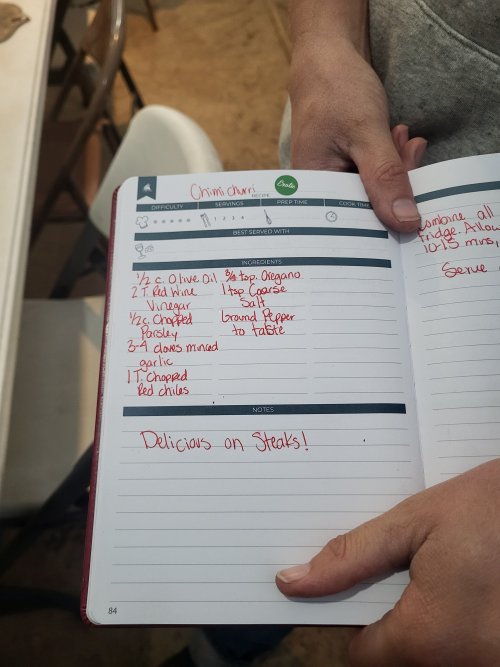 Chimichurri
RECIPE
DIFFICULTY SERVINGS PREP TIME COOK TIME
1 2 3 4
BEST SERVED WITH
INGREDIENTS
1/2 c. Olive Oil
2 T. Red Wine
Vinegar
1/2 c. Chopped
Parsley
3-4 cloves minced
garlic
1 T. Chopped
Red chiles
3/4 tsp. Oregano
1 tsp. Coarse
Salt
Ground Pepper
to taste
NOTES
Delicious on Steaks!
84
Combine all
fridge. Allow
10-15 mins,
Serve